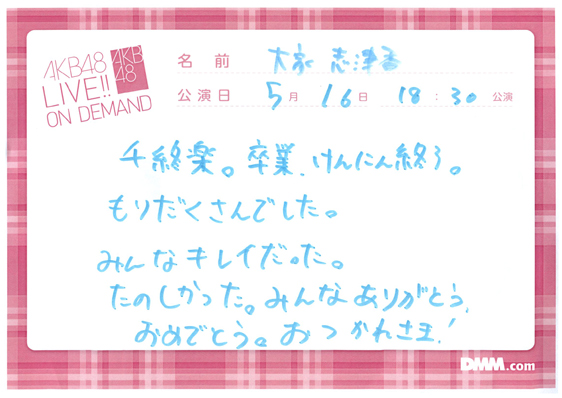 AKB48
LIVE!!
ON DEMAND
AKB
48
名前 大家 志津香
公演日 5月 16日 18:30 公演
千終楽。卒業、けんにん終了。
もりだくさんでした。
みんなキレイだった。
たのしかった。みんなありがとう、
おめでとう。おつかれさま!
DMM.com